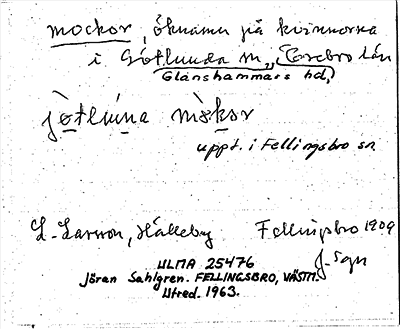 mockor, öknamn på kvinnorna
i Götlunda sn, Örebro län
Glanshammars hd,
jò̱tlu̱na mò̱kor
uppt. i Fellingsbro sn
L. Larson, Hälleby Fellingsbro 1909
J. Sgn
ULMA 25476
Jöran Sahlgren. FELLINGSBRO, VÄSTM.
Utred. 1963.